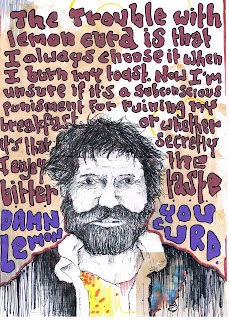 The Trouble with
lemon curd is that
I always choose it when
I burn my toast. Now I'm
unsure if it's a subconscious
punisment for ruining my
breakfast or whether
it's that secretly
I enjoy the
bitter taste
DAMN YOU
LEMON CURD